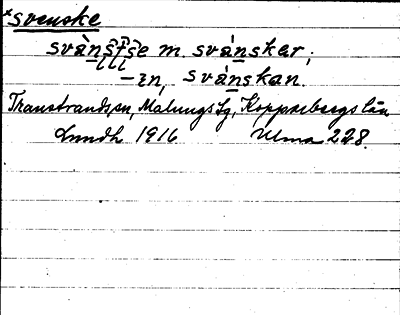 *svenske
svànstse m. svánskar;
-en, svánskan.
Transtrands sn, Malungs tg, Kopparbergs län
Lundh 1916 Ulma 228.